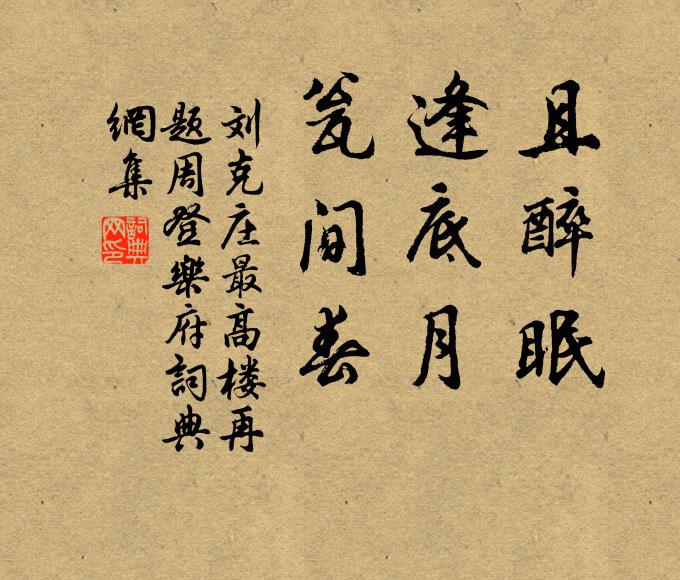 且醉眠
逢底月
瓮间春
刘克庄最高楼再
题周登樂府詞典
網集
詞典
网印